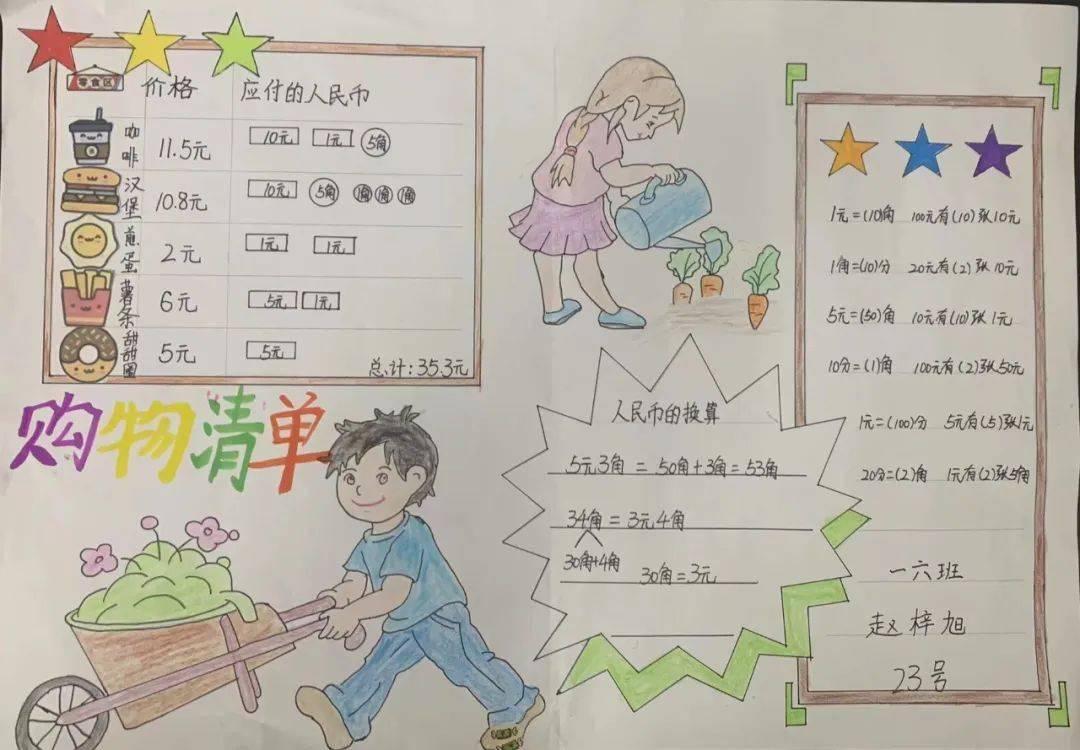 零食区 价格 应付的人民币
咖啡 11.5元 10元 1元 5角
汉堡 10.8元 10元 5角 1角 1角 1角
煎蛋 2元 1元 1元
薯条 6元 5元 1元
甜甜圈 5元 5元
总计:35.3元
购物清单
人民币的换算
5元3角 = 50角+3角=53角
34角=3元4角
30角+4角
30角=3元
1元=(10)角 100元有(10)张10元
1角=(10)分 20元有(2)张10元
5元=(50)角 10元有(10)张1元
10分=(1)角 100元有(2)张50元
1元=(100)分 5元有(5)张1元
20分=(2)角 1元有(2)张5角
一六班
赵梓旭
23号